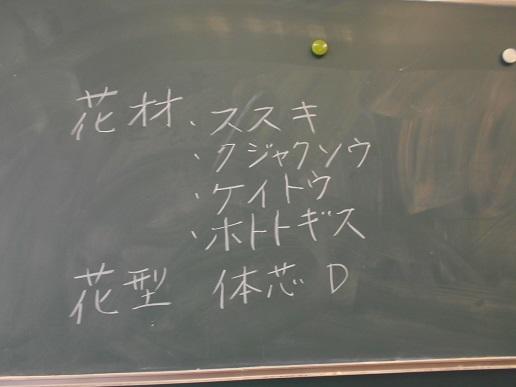 花材・ススキ
・クジャクソウ
・ケイトウ
・ホトトギス
花型 体芯 D